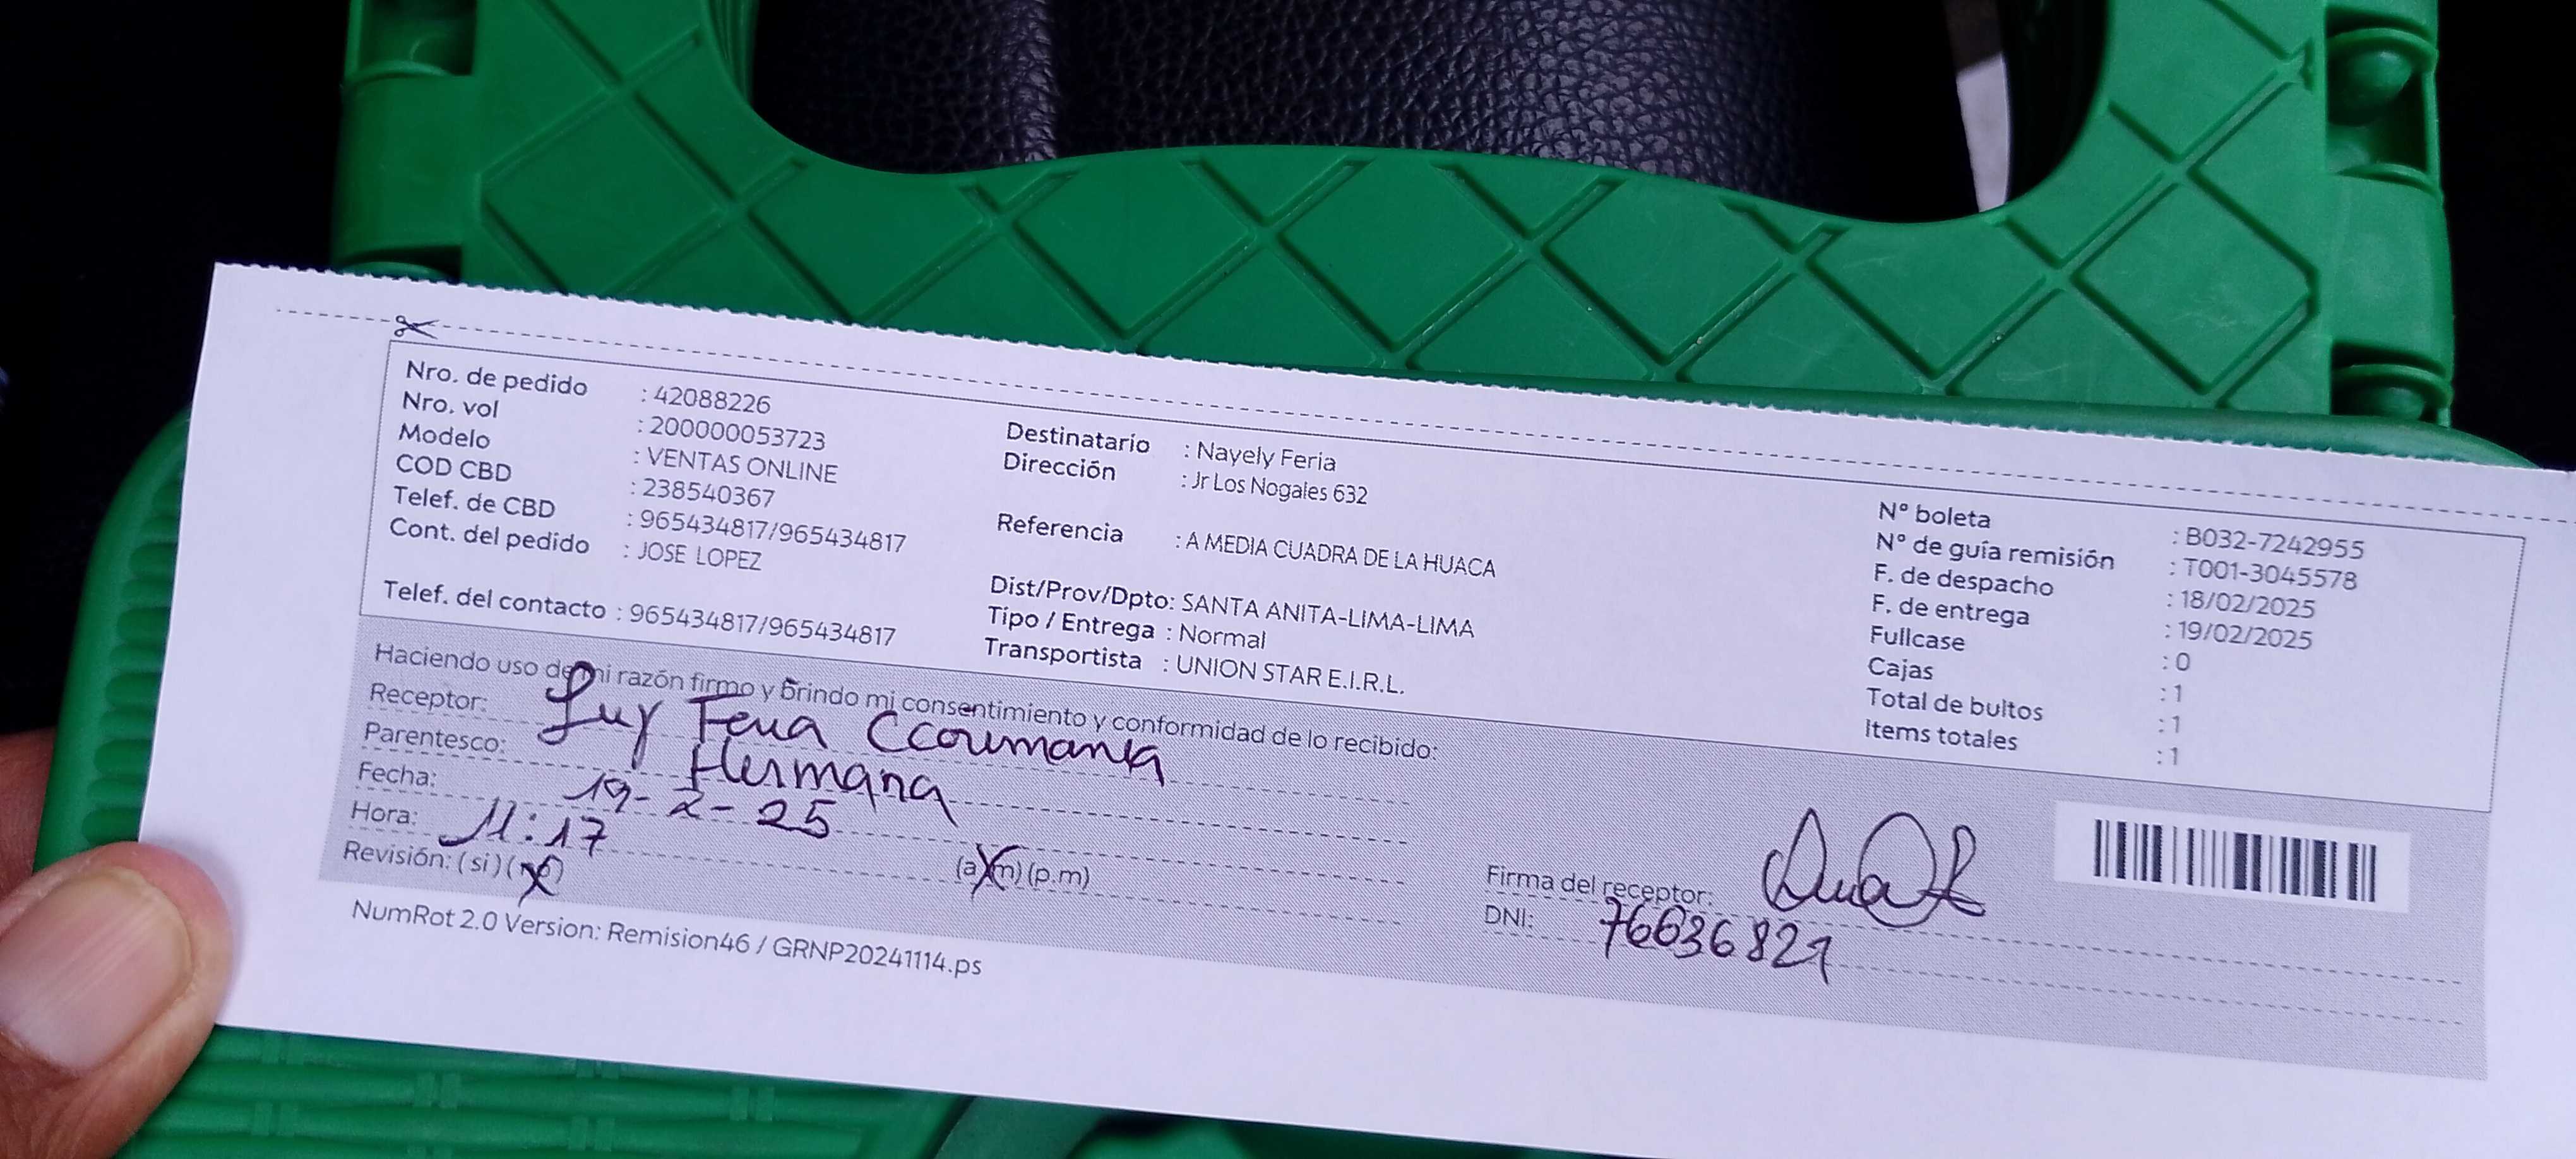 Nro. de pedido : 42088226
Nro. vol : 200000053723
Modelo : VENTAS ONLINE
COD CBD : 238540367
Telef. de CBD : 965434817/965434817
Cont. del pedido : JOSE LOPEZ
Telef. del contacto : 965434817/965434817
Destinatario : Nayely Feria
Dirección : Jr Los Nogales 632
Referencia : A MEDIA CUADRA DE LA HUACA
Dist/Prov/Dpto: SANTA ANITA-LIMA-LIMA
Tipo / Entrega : Normal
Transportista : UNION STAR E.I.R.L.
N° boleta : B032-7242955
N° de guía remisión : T001-3045578
F. de despacho : 18/02/2025
F. de entrega : 19/02/2025
Fullcase : 0
Cajas : 1
Total de bultos : 1
Items totales : 1
Haciendo uso de mi razón firmo y brindo mi consentimiento y conformidad de lo recibido:
Receptor: Luy Feria
Parentesco: Hermana
Fecha: 19-2-25
Hora: 11:17 (a.m) (p.m)
Revisión: (si) (no)
Firma del receptor:
DNI: 76636821
NumRot 2.0 Version: Remision46 / GRNP20241114.ps